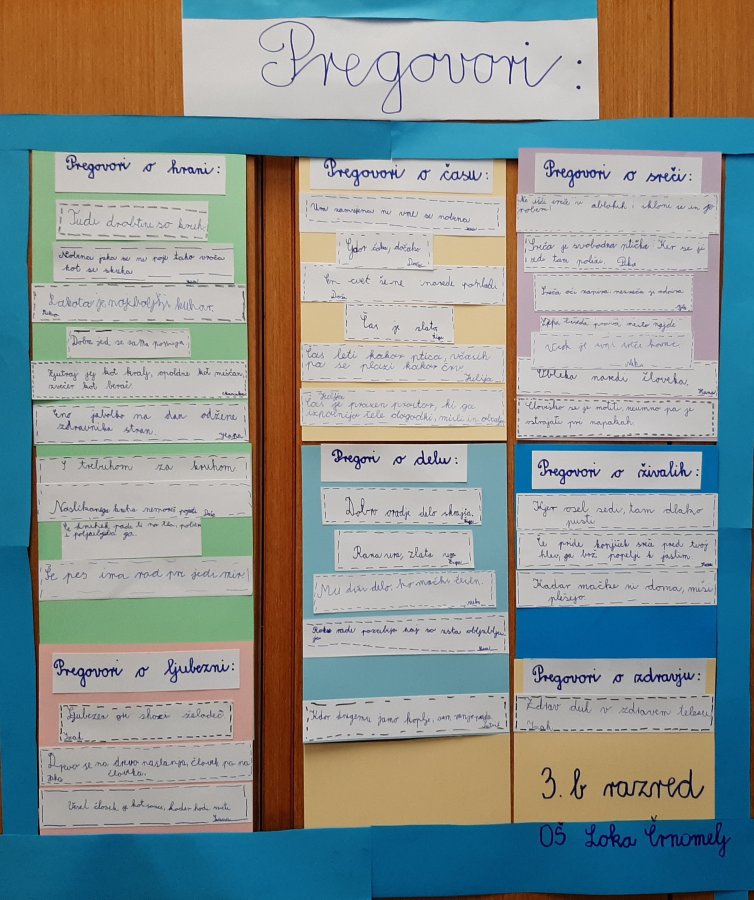 Pregovori:
Pregovori o hrani:
Tudi drobtine so kruh.
Nobena juha se ne poje tako vroča
kot se skuha.
Lakota je najboljši kuhar.
Dobra jed se sama ponuja.
Zjutraj jej kot kralj, opoldne kot meščan,
zvečer kot berač.
Eno jabolko na dan odžene
zdravnika stran.
S trebuhom za kruhom.
Naslikanega kruha ne moreš pojesti.
Še pes ima rad pri jedi mir.
Pregovori o ljubezni:
Ljubezen gre skozi želodec
Drevo se na drevo naslanja, človek pa na
človeka.
Vesel človek je kot sonce, koder hodi sveti
Pregovori o času:
Ura zamujena ne vrne se nobena
Kdor čaka, dočaka.
En cvet še ne naredi pomladi.
Čas je zlato
Čas leti kakor ptica, včasih
pa se plazi kakor črv
Čas je prazen prostor, ki ga
izpolnijo šele dogodki, misli in
Pregori o delu:
Dobro orodje delo skrajša.
Rana ura, zlata ura
Mu diši delo, ko mački
Kdor drugemu jamo koplje, sam vanjo pade.
Pregovori o sreči:
Ne išči sreče v oblakih, skloni se in jo
Sreča je svobodna ptička. Kjer se ji
zdi tam počiva.
Sreča oči zapira nesreča jo odpira
Lepa beseda pravo mesto najde
Vsak je svoje sreče kovač.
Obleka naredi človeka.
Človeško se je motiti, neumno pa je
vstrajati pri napakah.
Pregovori o živalih:
Kjer osel sedi, tam dlako
pusti
Če pride konjiček sreče pred tvoj
hlev, ga brž popelji k jaslim.
Kadar mačke ni doma, miši
plešejo.
Pregovori o zdravju:
Zdrav duh v zdravem telesu
3. b razred
OŠ Loka Črnomelj